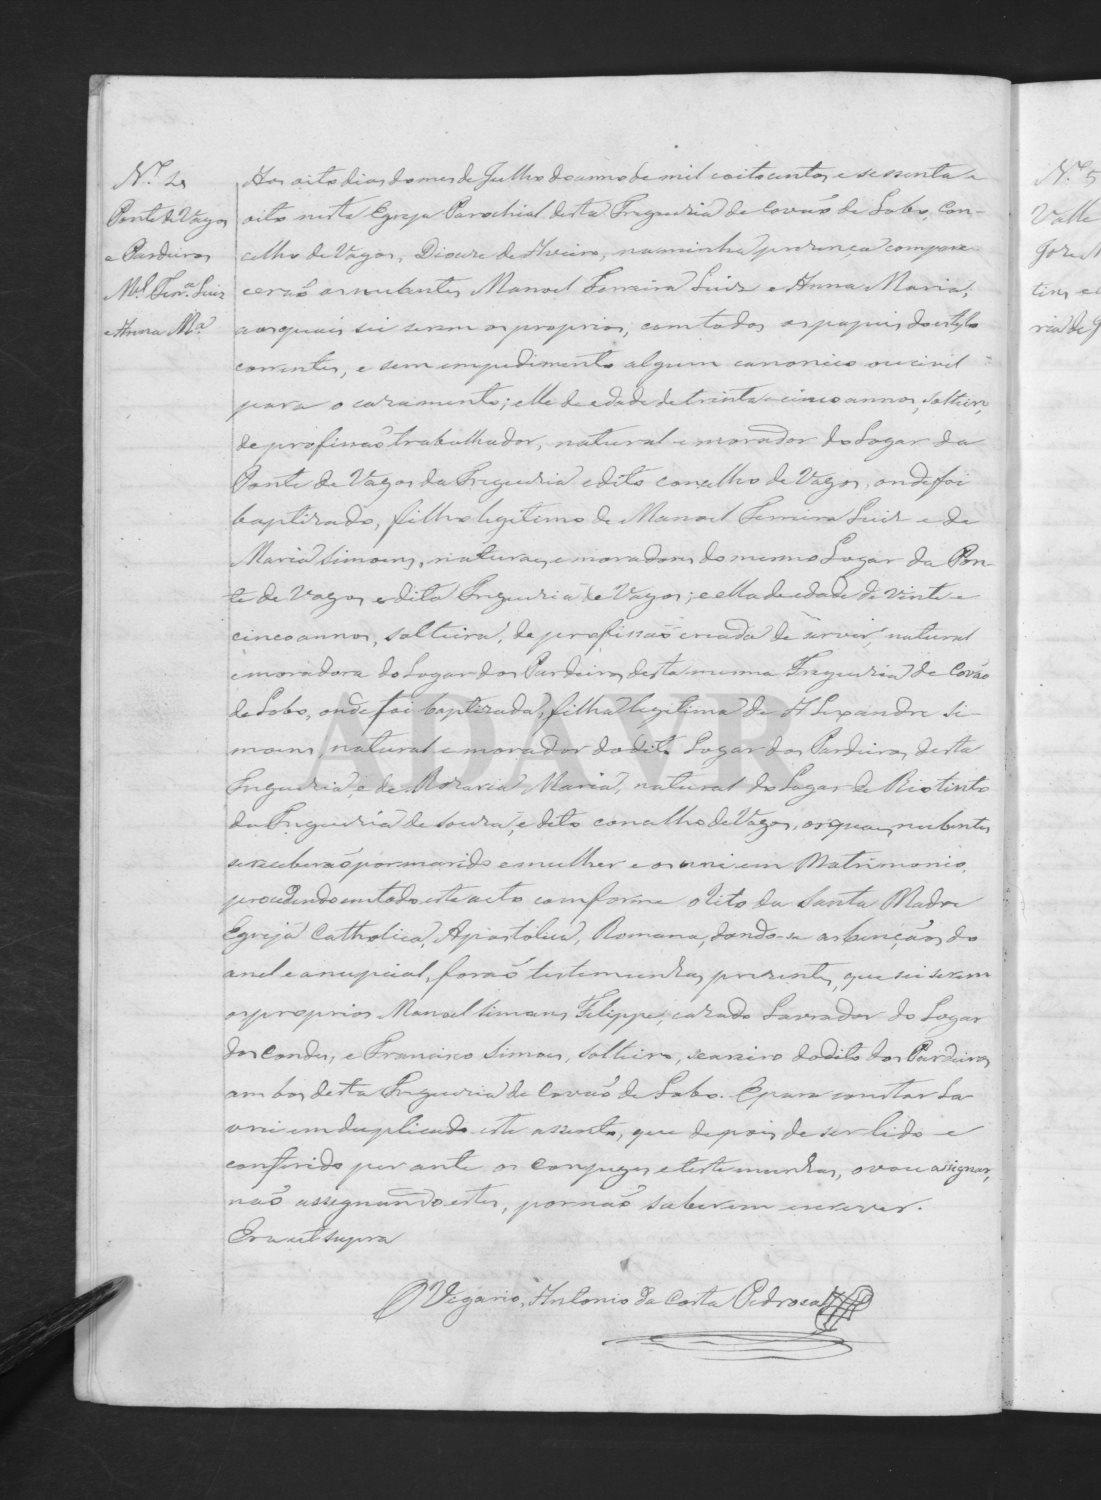 N.º 4
Ponte de Vagos
e Pardieiros
M.el Ferr.ª Luiz
e Anna M.ª
Aos oito dias do mes de Julho do anno de mil e oitocentos e sessenta e
oito nesta Egreja Parochial desta Freguezia de Covaõ de Lobo, Con-
celho de Vagos, Diocese de Aveiro, na minha prezença compare-
ceraõ os nubentes Manoel Ferreira Luiz e Anna Maria,
aos quais sei serem os proprios, com todos os papeis do estylo
correntes, e sem empedimento algum canonico ou civil
para o cazamento; elle de edade de trinta e cinco annos, solteiro,
de profissaõ trabalhador, natural e morador do Logar da
Ponte de Vagos da Freguezia e dito concelho de Vagos, onde foi
baptizado, filho legitimo de Manoel Ferreira Luiz e de
Maria Simoens, naturaes e moradores do mesmo Logar da Pon-
te de Vagos e dita Freguezia de Vagos; e ella de edade de vinte e
cinco annos, solteira, de profissaõ criada de servir, natural
e moradora do Logar dos Pardieiros desta mesma Freguezia de Covaõ
de Lobo, onde foi baptizada, filha legitima de Alexandre Si-
moens, natural e morador do dito Logar dos Pardieiros desta
Freguezia, e de Rozaria Maria, natural do Logar de Rio tinto
da Freguezia de Souza, e dito concelho de Vagos, os quaes nubentes
se receberaõ por marido e mulher e os uni em Matrimonio,
procedendo em todo este acto comforme o Rito da Santa Madre
Egreja Catholica, Apostolica, Romana, dando-se as bençãos do
anel e a nupcial, foraõ testemunhas prezentes, que sei serem
os proprios Manoel Simoens Filippe, cazado Lavrador do Logar
dos Condes, e Francisco Simoes, solteiro, do dito dos Pardieiros
ambos desta Freguezia de Covaõ de Lobo. E para constar La-
vrei em duplicado este assento, que depois de ser lido e
conferido perante os Conjuges e testemunhas, o vou assignar,
naõ assignando estes, por naõ saberem escrever.
Era ut supra
O Vigario, Antonio da Costa Pedroza
ADAVR
N.º 5
Valle